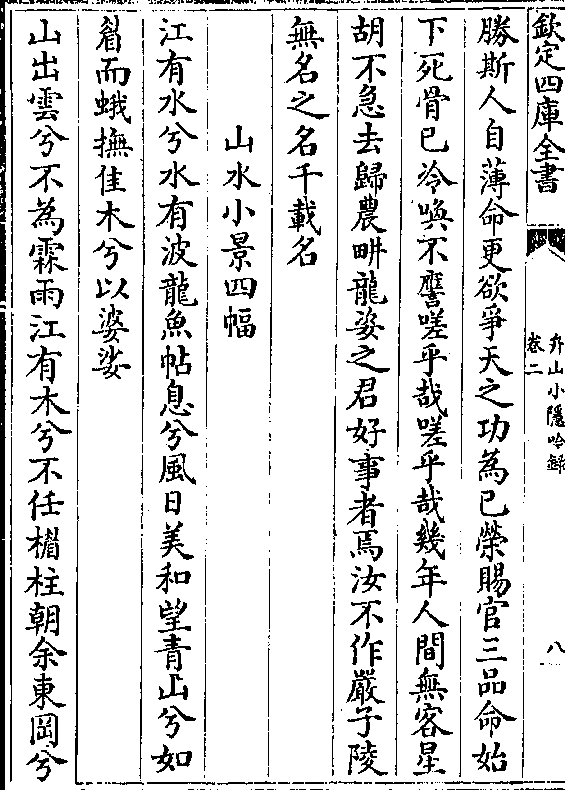 欽定四庫全書
弁山小隱吟錄
卷二
八
勝斯人自薄命更欲爭天之功為已榮賜官三品命始
下死骨已冷喚不譍嗟乎哉嗟乎哉幾年人間無客星
胡不急去歸農畊龍姿之君好事者焉汝不作嚴子陵
無名之名千載名
山水小景四幅
江有水兮水有波龍魚帖息兮風日美和望青山兮如
翦而蛾撫佳木兮以婆娑
山出雲兮不為霖雨江有木兮不任楣柱朝余東岡兮